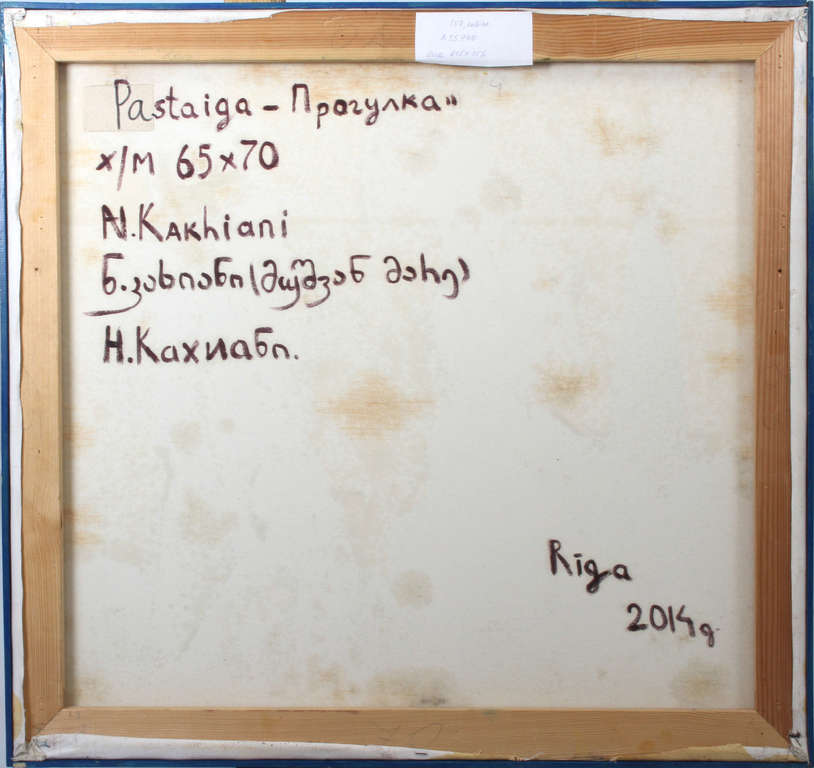 Pastaiga - Прогулка"
х/м 65x70
N.Kakhiani
ნ.კახიანი(მუშვან მარე)
Н.Кахиани.
Rīga
2014г